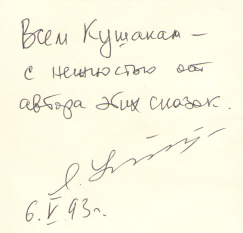 Всем Кушакам —
с нежностью от
автора этих сказок.
6.V.93г.